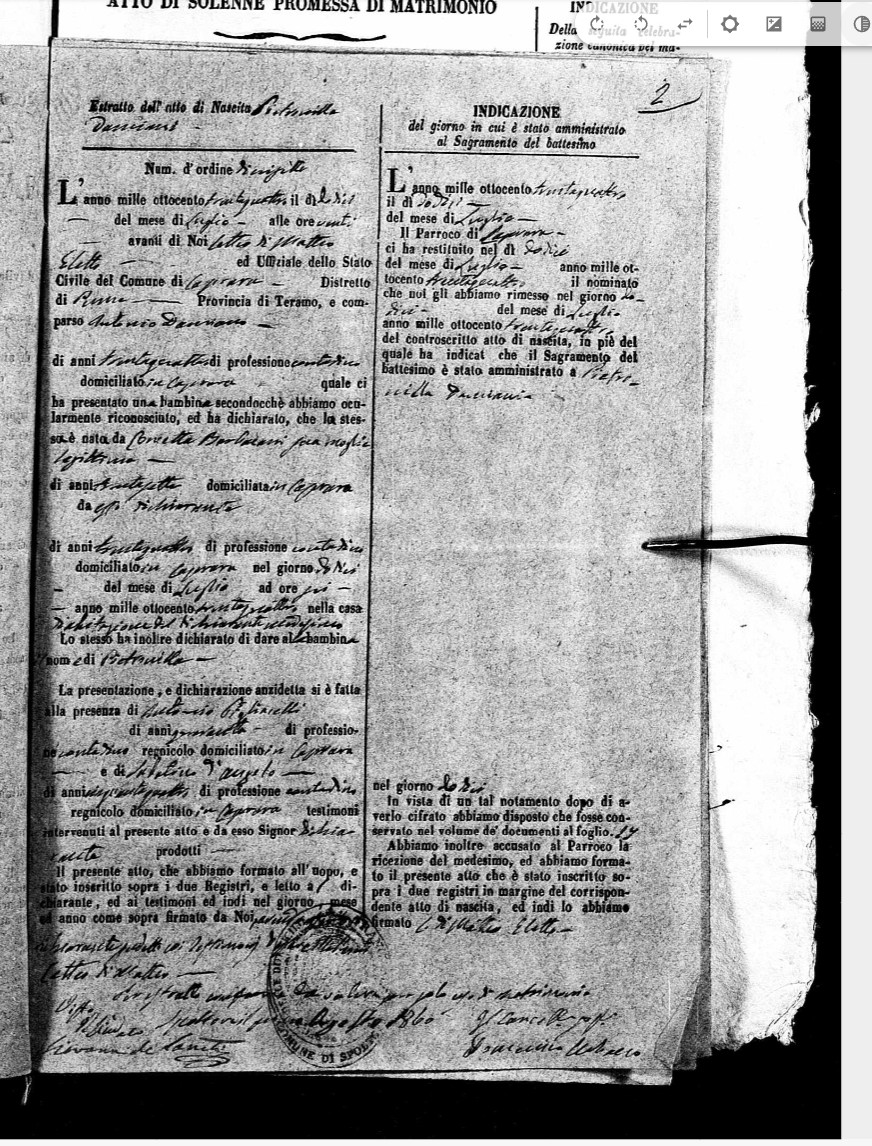 ATTO DI SOLENNE PROMESSA DI MATRIMONIO
INDICAZIONE
Della seguita celebra-
zione canonica del ma-
2
Estratto dell' atto di Nascita Pietronilla
Damiani
Num. d' ordine
L' anno mille ottocento trentaquattro il dì dodici
del mese di Luglio alle ore venti
avanti di Noi Cetteo di Matteo
Eletto ed Uffiziale dello Stato
Civile del Comune di Caprara Distretto
di Penne Provincia di Teramo, e com-
parso Antonio Damiani
di anni trentaquattro di professione contadino
domiciliato in Caprara quale ci
ha presentato una bambina secondocchè abbiamo ocu-
larmente riconosciuto, ed ha dichiarato, che la stes-
sa è nata da Barbara sua moglie
legittima
di anni domiciliata in Caprara
da esso dichiarante
di anni trentaquattro di professione contadino
domiciliato in Caprara nel giorno dodici
del mese di Luglio ad ore
anno mille ottocento trentaquattro nella casa
d'abitazione del dichiarante
Lo stesso ha inoltre dichiarato di dare alla bambina
il nome di Pietronilla
La presentazione, e dichiarazione anzidetta si è fatta
alla presenza di Antonio
di anni di professio-
ne contadino regnicolo domiciliato in Caprara
e di d'Angelo
di anni di professione contadino
regnicolo domiciliato in Caprara testimoni
intervenuti al presente atto e da esso Signor dichia-
rante prodotti
Il presente atto, che abbiamo formato all' uopo, e
stato inscritto sopra i due Registri, e letto al di-
chiarante, ed ai testimoni ed indi nel giorno, mese
ed anno come sopra firmato da Noi
Cetteo di Matteo
INDICAZIONE
del giorno in cui è stato amministrato
al Sagramento del battesimo
L' anno mille ottocento trentaquattro
il dì dodici
del mese di Luglio
Il Parroco di Caprara
ci ha restituito nel dì dodici
del mese di Luglio anno mille ot-
tocento trentaquattro il nominato
che noi gli abbiamo rimesso nel giorno do-
dici del mese di Luglio
anno mille ottocento trentaquattro
del controscritto atto di nascita, in piè del
quale ha indicat che il Sagramento del
battesimo è stato amministrato a Pietro-
nilla Damiani
nel giorno dodici
In vista di un tal notamento dopo di a-
verlo cifrato abbiamo disposto che fosse con-
servato nel volume de' documenti al foglio. 17
Abbiamo inoltre accusato al Parroco la
ricezione del medesimo, ed abbiamo forma-
to il presente atto che è stato inscritto so-
pra i due registri in margine del corrispon-
dente atto di nascita, ed indi lo abbiamo
firmato C. di Matteo Eletto
uso di matrimonio
Agosto 1860
Il Sindaco
Il Cancell
COMUNE DI SPOLT